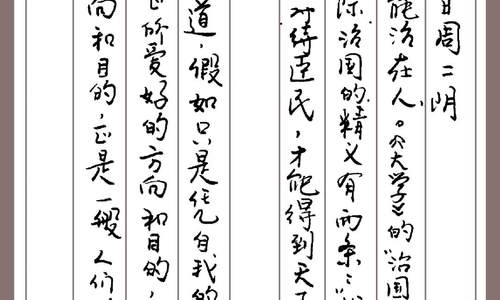 日周二阴
能治在人。《大学》的“治国
际治国的精义有两条：“
对待连民，才能得到天下
道，假如只是任凭自我的
正的爱好的方向和目的，
向和目的，正是一般人们